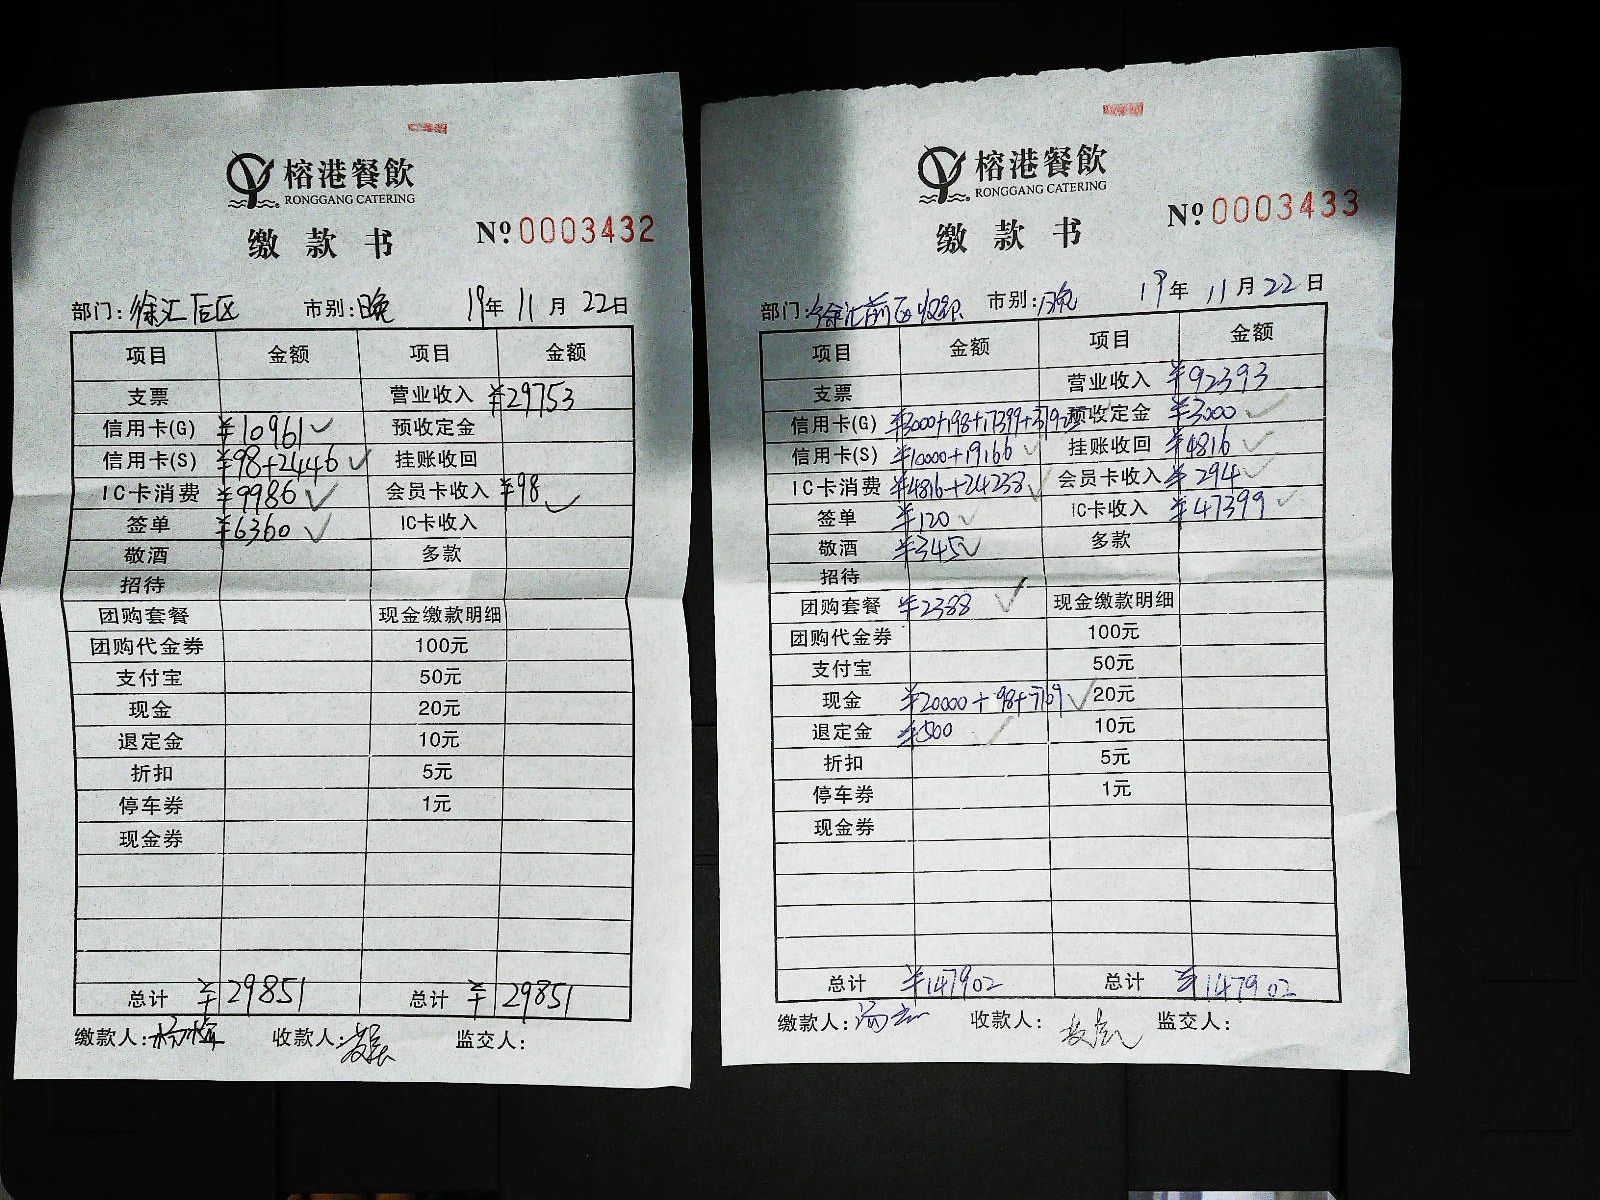 榕港餐飲
RONGGANG CATERING
缴款书
№ 0003432
部门: 徐汇后区 市别: 晚 19年 11月 22日
项目 金额 项目 金额
支票 营业收入 ¥29753
信用卡(G) ¥10961 预收定金
信用卡(S) ¥98+2446 挂账收回
IC卡消费 ¥9986 会员卡收入 ¥98
签单 ¥6360 IC卡收入
敬酒 多款
招待
团购套餐 现金缴款明细
团购代金券 100元
支付宝 50元
现金 20元
退定金 10元
折扣 5元
停车券 1元
现金券
总计 ¥29851 总计 ¥29851
缴款人: 杨梅 收款人: 监交人:
榕港餐飲
RONGGANG CATERING
缴款书
№ 0003433
部门: 徐汇前区收银 市别: 晚 19年 11月 22日
项目 金额 项目 金额
支票 营业收入 ¥92393
信用卡(G) ¥3000+198+17399+ 预收定金 ¥3000
信用卡(S) ¥10000+19166 挂账收回 ¥4816
IC卡消费 ¥4816+24238 会员卡收入 ¥294
签单 ¥120 IC卡收入 ¥47399
敬酒 ¥345 多款
招待
团购套餐 ¥2388 现金缴款明细
团购代金券 100元
支付宝 50元
现金 ¥20000+98+7169 20元
退定金 ¥500 10元
折扣 5元
停车券 1元
现金券
总计 ¥147902 总计 ¥147902
缴款人: 收款人: 监交人: